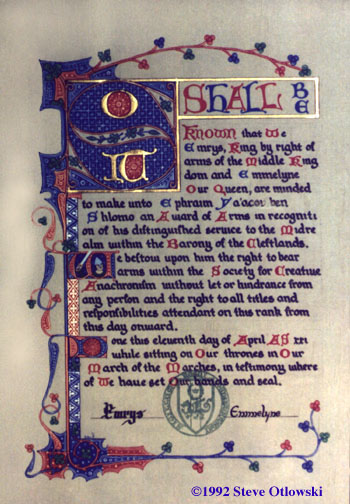 IT SHALL BE
KNOWN that We
Emrys, King by right of
arms of the Middle King
dom and Emmelyne
Our Queen, are minded
to make unto Ephraim Ya'acov ben
Shlomo an Award of Arms in recogniti
on of his distinguished service to the Midre
alm within the Barony of the Cleftlands.
We bestow upon him the right to bear
arms within the Society for Creative
Anachronism without let or hindrance from
any person and the right to all titles and
responsibilities attendant on this rank from
this day onward.
Done this eleventh day of April AS XXI
while sitting on Our thrones in Our
March of the Marches, in testimony where
of We have set Our hands and seal.
Emrys Emmelyne
©1992 Steve Otlowski